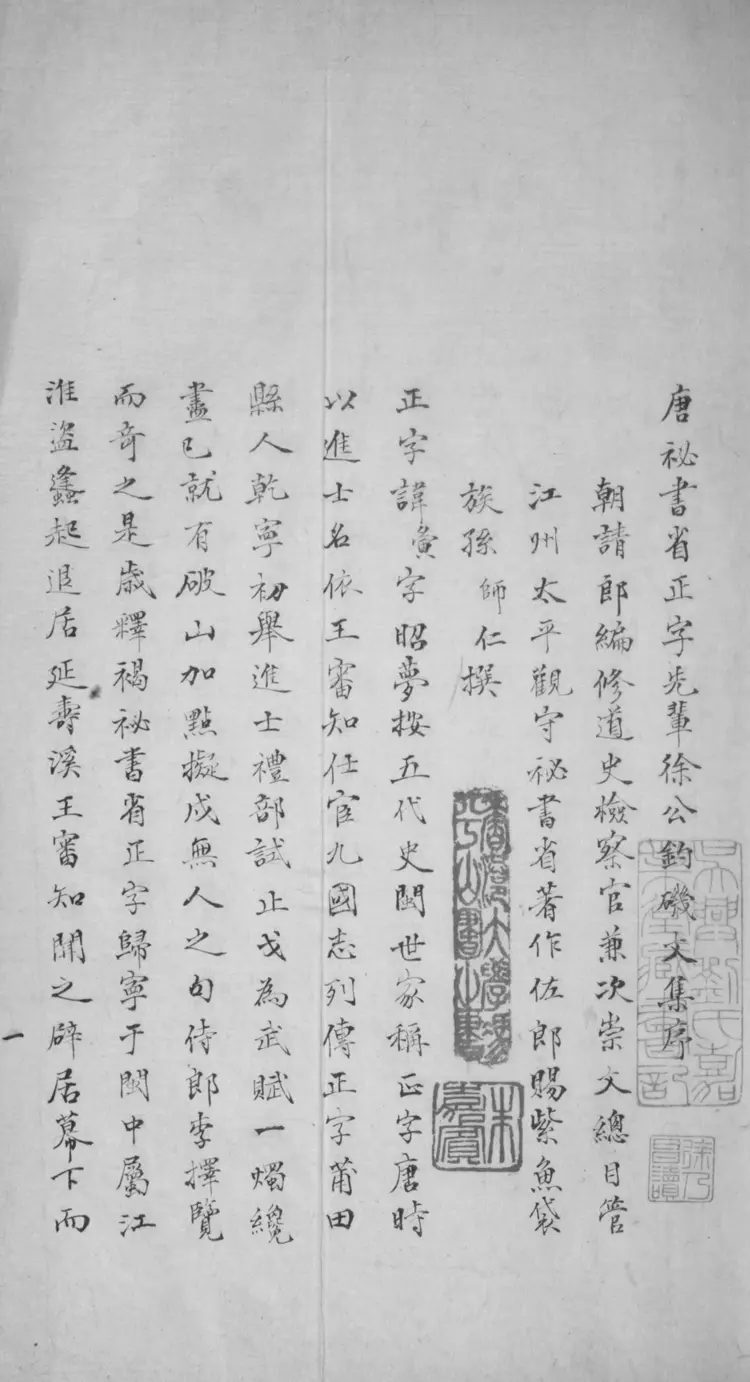 唐祕書省正字先輩徐公釣磯文集序
朝請郎編修道史檢察官兼次崇文總目管
江州太平觀守祕書省著作佐郎賜紫魚袋
族孫師仁撰
正字諱夤字昭夢按五代史閩世家稱正字唐時
以進士名依王審知仕宦九國志列傳正字莆田
縣人乾寧初舉進士禮部試止戈為武賦一燭纔
盡已就有破山加點擬戍無人之句侍郎李擇覽
而奇之是歲釋褐祕書省正字歸寧于閩中屬江
淮盜蠭起退居延壽溪王審知聞之辟居幕下而
一
吳興劉氏嘉業堂藏書記
徐乃昌讀
朱嘉賓